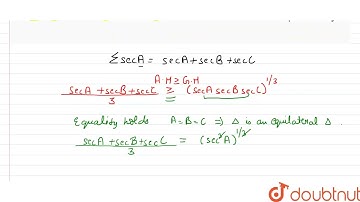 ∑secA = secA + secB + secC
A.M ≥ G.M
secA + secB + secC / 3 ≥ (secA secB secC)^1/3
Equality holds A = B = C ⇒ Δ is an equilateral Δ.
secA + secB + secC / 3 = (sec³A)^1/3
doubtnut